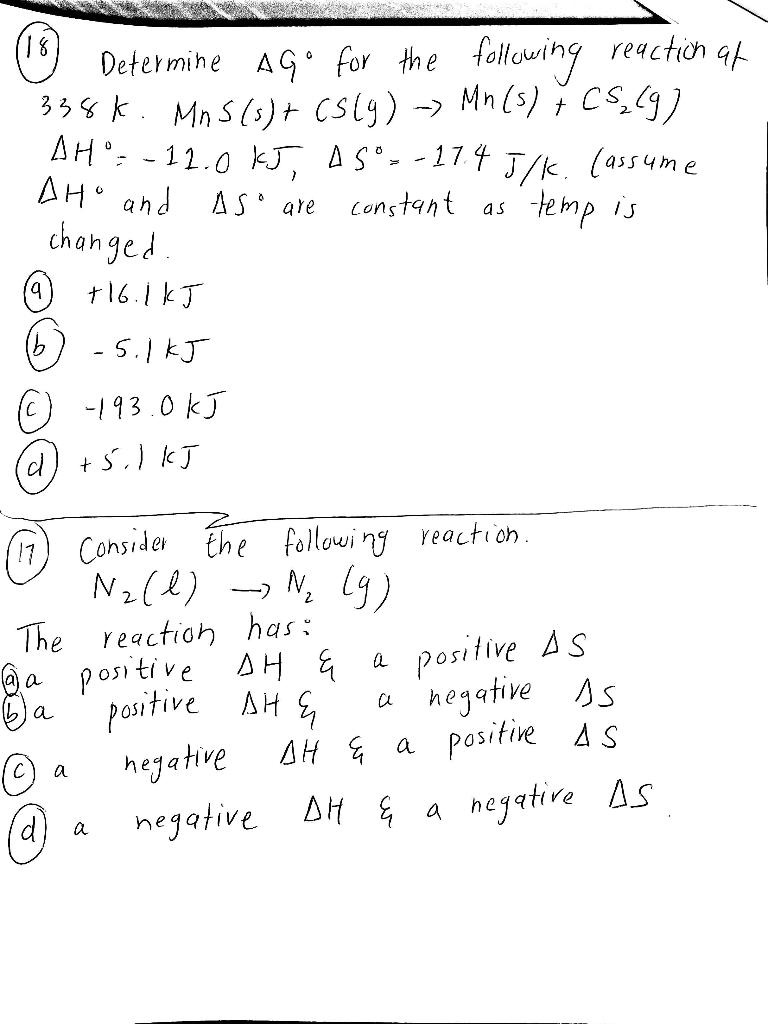 18 Determine ΔG° for the following reaction at
338 K. MnS(s) + CS(g) → Mn(s) + CS₂(g)
ΔH° = -11.0 kJ, ΔS° = -17.4 J/k. (assume
ΔH° and ΔS° are constant as temp is
changed.
a +16.1 kJ
b -5.1 kJ
c -193.0 kJ
d +5.1 kJ
17 Consider the following reaction.
N₂(l) → N₂ (g)
The reaction has:
a a positive ΔH & a positive ΔS
b a positive ΔH & a negative ΔS
c a negative ΔH & a positive ΔS
d a negative ΔH & a negative ΔS.